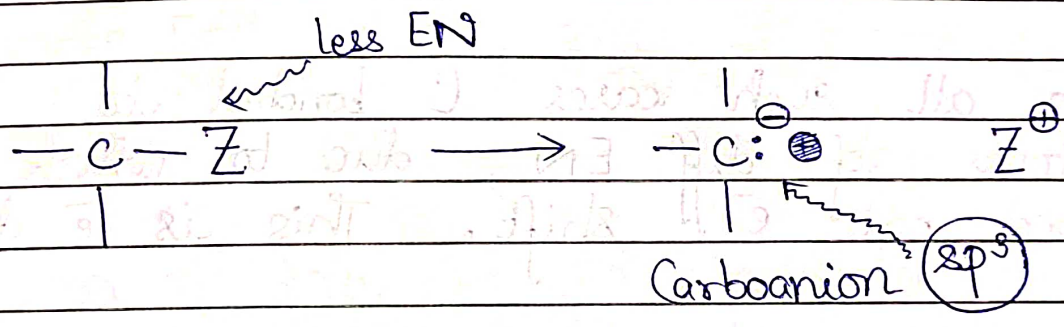 less EN
— C — Z → — C: ⊖ Z⊕
Carboanion sp³